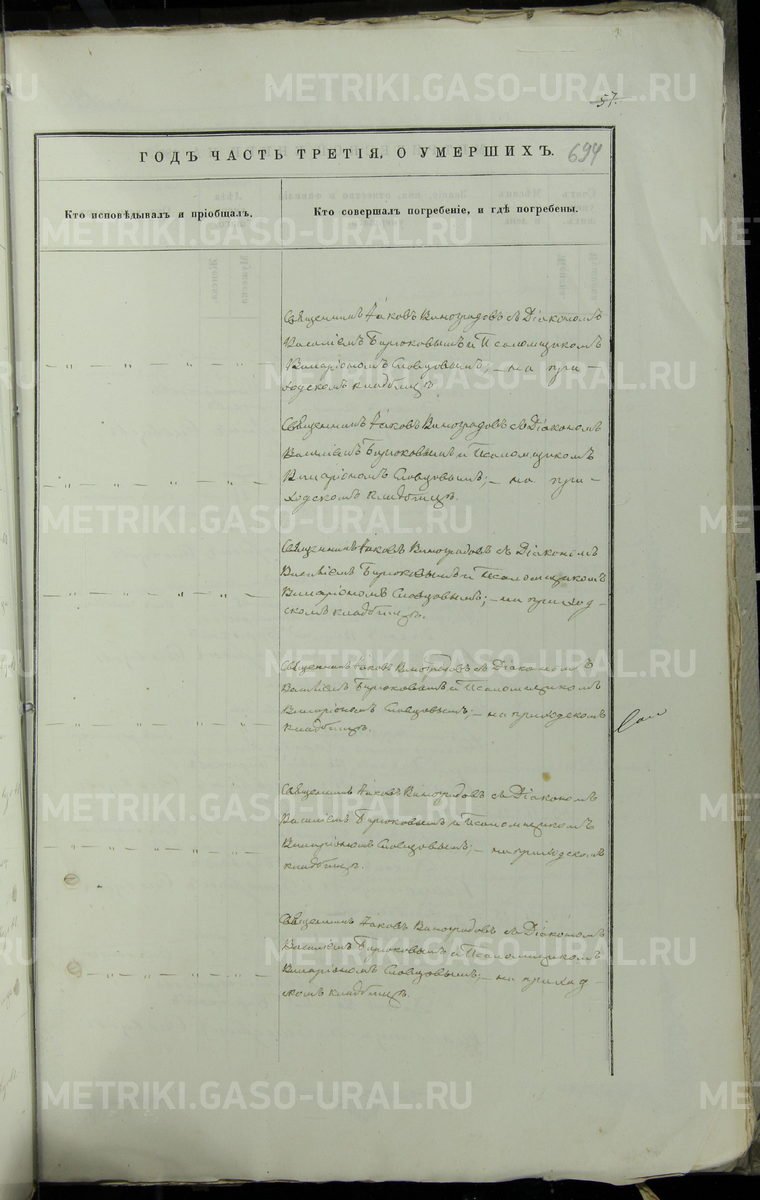 57.
ГОДЪ ЧАСТЬ ТРЕТІЯ, О УМЕРШИХЪ.
694
Кто исповѣдывалъ и пріобщалъ.
Кто совершалъ погребеніе, и гдѣ погребены.
Священникъ Іаковъ Виноградовъ съ Діакономъ
Василіемъ Бирюковымъ и Псаломщикомъ
Иларіономъ Словцовымъ; – на при-
ходскомъ кладбищѣ.
Священникъ Іаковъ Виноградовъ съ Діакономъ
Василіемъ Бирюковымъ и Псаломщикомъ
Иларіономъ Словцовымъ; – на при-
ходскомъ кладбищѣ.
Священникъ Іаковъ Виноградовъ съ Діакономъ
Василіемъ Бирюковымъ и Псаломщикомъ
Иларіономъ Словцовымъ; – на приход-
скомъ кладбищѣ.
Священникъ Іаковъ Виноградовъ съ Діакономъ
Василіемъ Бирюковымъ и Псаломщикомъ
Иларіономъ Словцовымъ; – на приходскомъ
кладбищѣ.
Священникъ Іаковъ Виноградовъ съ Діакономъ
Василіемъ Бирюковымъ и Псаломщикомъ
Иларіономъ Словцовымъ; – на приходскомъ
кладбищѣ.
Священникъ Іаковъ Виноградовъ съ Діакономъ
Василіемъ Бирюковымъ и Псаломщикомъ
Иларіономъ Словцовымъ; – на приход-
скомъ кладбищѣ.
METRIKI.GASO-URAL.RU